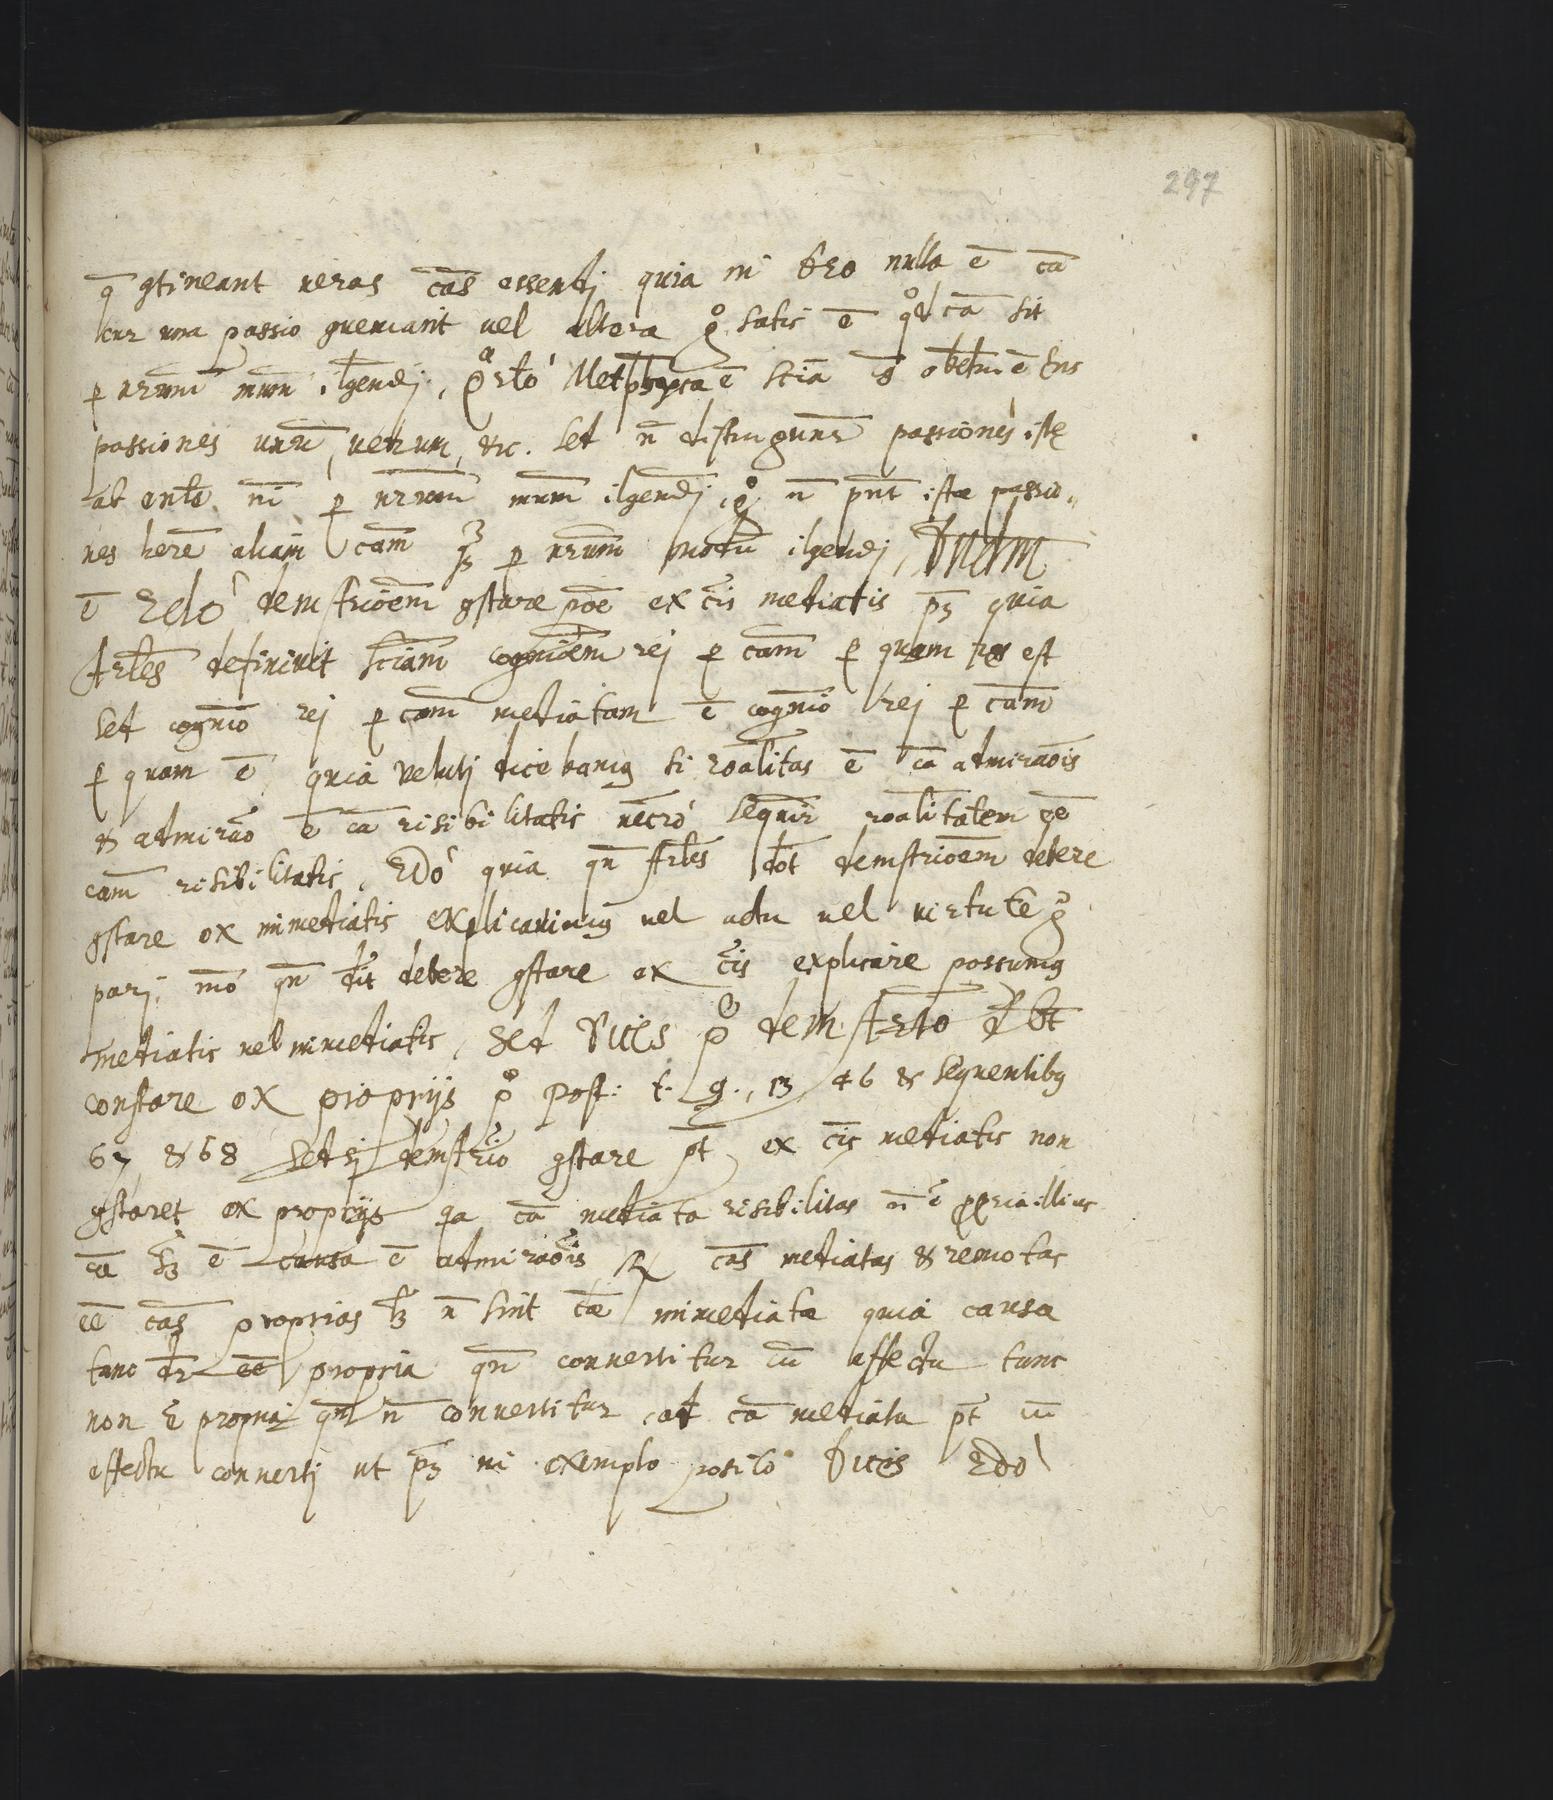 297
q̄ gtineant ueras cās essendj quia in Deo nulla ē cā
cur una passio gueniant uel altera satis ē qd cā sit
p nrūm mūm ilgendj, Metphyca ē sciā obtum ē Ens
passiones unū, uerum, &c. Sed n̄ distinguunr passiones istę
ab ente ni p nrum mum ilgendj, go n̄ pnt istæ passio,
nes here aliam cam p nrum modū ilgendj,
ē 2do demstrioem gstare poe ex cis mediatis pz quia
Arles definiuit sciam cognioem rej p cam p quam res est
sed cognio rej p cam mediatam ē cognio rej p cam
p quam ē, quia velutj dicebamus si roalitas ē cā admiraois
& admirao ē cā risibilitatis necro sequir roalitatem ee
cam risibilitatis, 2do quia qn Arles dot demstrioem debere
gstare ex immediatis explicauimus uel actu uel uirtute go
parj mo qn dit debere gstare ex cis explicare possumus
mediatis uel immediatis, Sed Dices po demstrio dbt
constare ex proprijs po Post: t. 9., 13, 46 & sequentibus
67 & 68 Sed sj demstrio gstare pt ex cis mediatis non
gstaret ex proprijs qa cā mediata risibilitas n̄ ē ppria illius
cā ē causa ē admiraois R cās mediatas & remotas
ēē cās proprias lz n̄ sint cæ immediatæ quia causa
tunc dr ēē propria qn conuertitur cū effectu tunc
non ē propria qn n̄ conuertitur, at cā mediata pt cū
effectu conuertj ut pz in exemplo posito Dices 2do